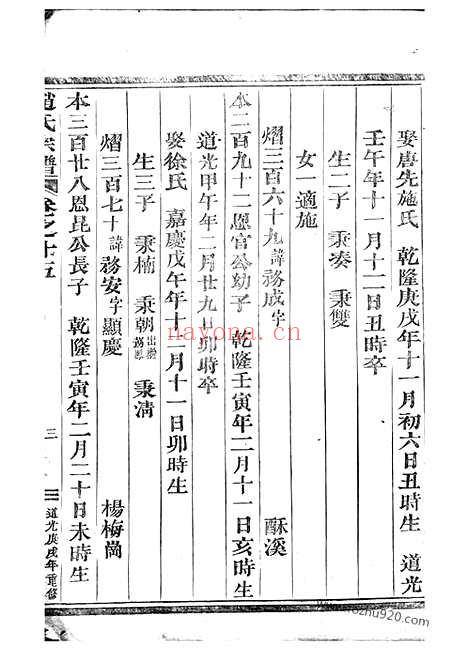 娶唐先施氏 乾隆庚戌年十一月初六日丑時生 道光
壬午年十一月十二日丑時卒
生二子 秉湊 秉雙
女一適施
熠三百六十九諱務成字 酥溪
本二百九十二恩官公幼子 乾隆壬寅年二月十一日亥時生
道光甲午年二月廿九日卯時卒
娶徐氏 嘉慶戊午年十二月十一日卯時生
生三子 秉楠 秉朝出繼 秉清
熠三百七十諱務安字顯慶 楊梅崗
本三百廿八恩昆公長子 乾隆壬寅年二月二十日未時生
趙氏宗譜 卷之十五 三 道光庚戌年重修
nayona.cn
www.10zhu920.com